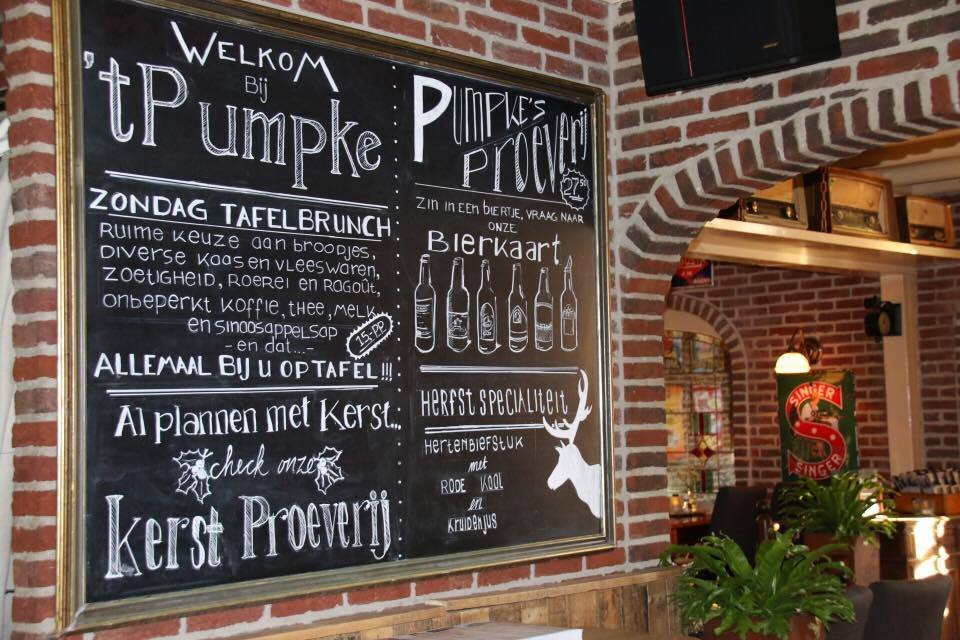 WELKOM
Bij
'tPumpke
ZONDAG TAFELBRUNCH
RUIME KEUZE AAN BROODJES,
DIVERSE KAAS EN VLEESWAREN,
ZOETIGHEID, ROEREI EN RAGOÛT,
ONBEPERKT KOFFIE, THEE, MELK
EN SINAASAPPELSAP
- EN DAT...-
15,- PP
ALLEMAAL BIJ U OP TAFEL!!!
Al plannen met Kerst...
check onze
Kerst Proeverij
PUMPKE'S
PROEVERIJ
27.50
ZIN IN EEN BIERTJE, VRAAG NAAR
ONZE
Bierkaart
HERFST SPECIALITEIT
HERTENBIEFSTUK
met
RODE KOOL
en
KRUIDENJUS
SINGER
SINGER